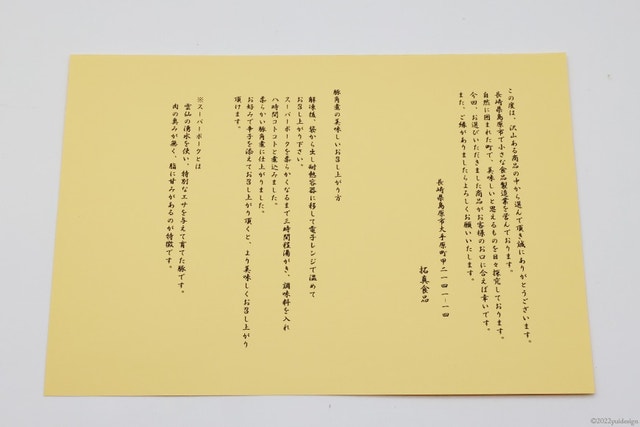 この度は、沢山ある商品の中から選んで頂き誠にありがとうございます。
長崎県島原市で小さな食品製造業を営んでおります。
自然に囲まれた町で、美味しいと思えるものを日々探究しております。
今回、お選びいただきました商品がお客様のお口に合えば幸いです。
また、ご縁がありましたらよろしくお願いいたします。
長崎県島原市大手原町甲二一四一-一四
拓真食品
豚角煮の美味しいお召し上がり方
解凍後、袋から出し耐熱容器に移して電子レンジで温めて
お召し上がり下さい。
スーパーポークを柔らかくなるまで三時間程湯がき、調味料を入れ
八時間コトコトと煮込みました。
柔らかい豚角煮に仕上がりました。
お好みで辛子を添えてお召し上がり頂くと、より美味しくお召し上がり
頂けます。
※スーパーポークとは
雲仙の湧水を使い、特別なエサを与えて育てた豚です。
肉の臭みが無く、脂に甘みがあるのが特徴です。
©2022puidesign